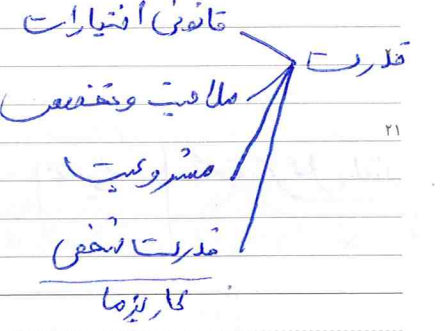 قانونی اختیارات
قدرت
صلاحیت وتخصص
۲۱
مشروعیت
قدرت شخصی
کاریزما